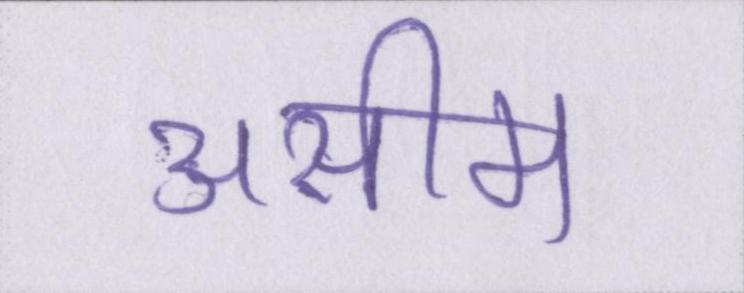 असीम